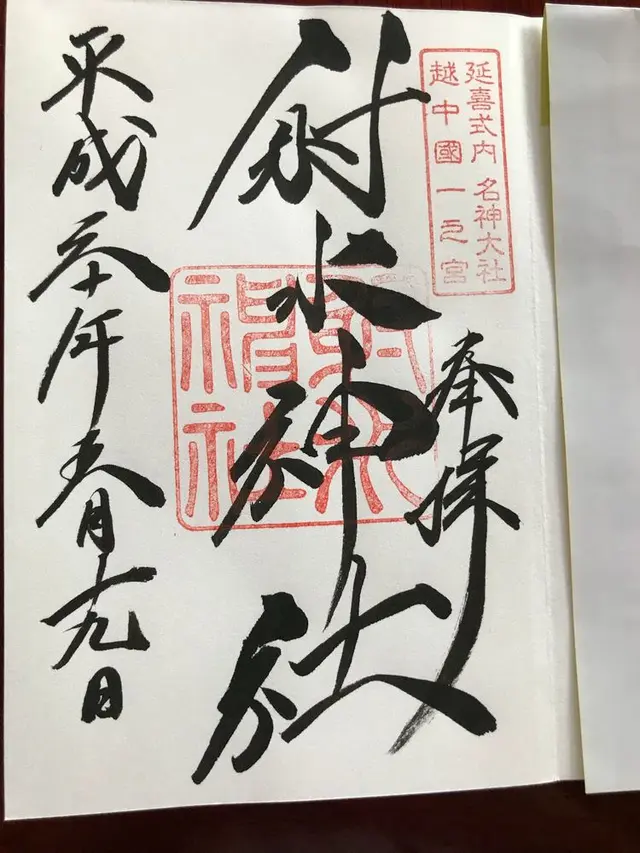 延喜式内 名神大社
越中國一之宮
奉拝
射水神社
平成三十年五月十九日